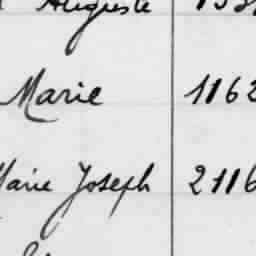 Auguste
Marie 1162
Marie Joseph 2116